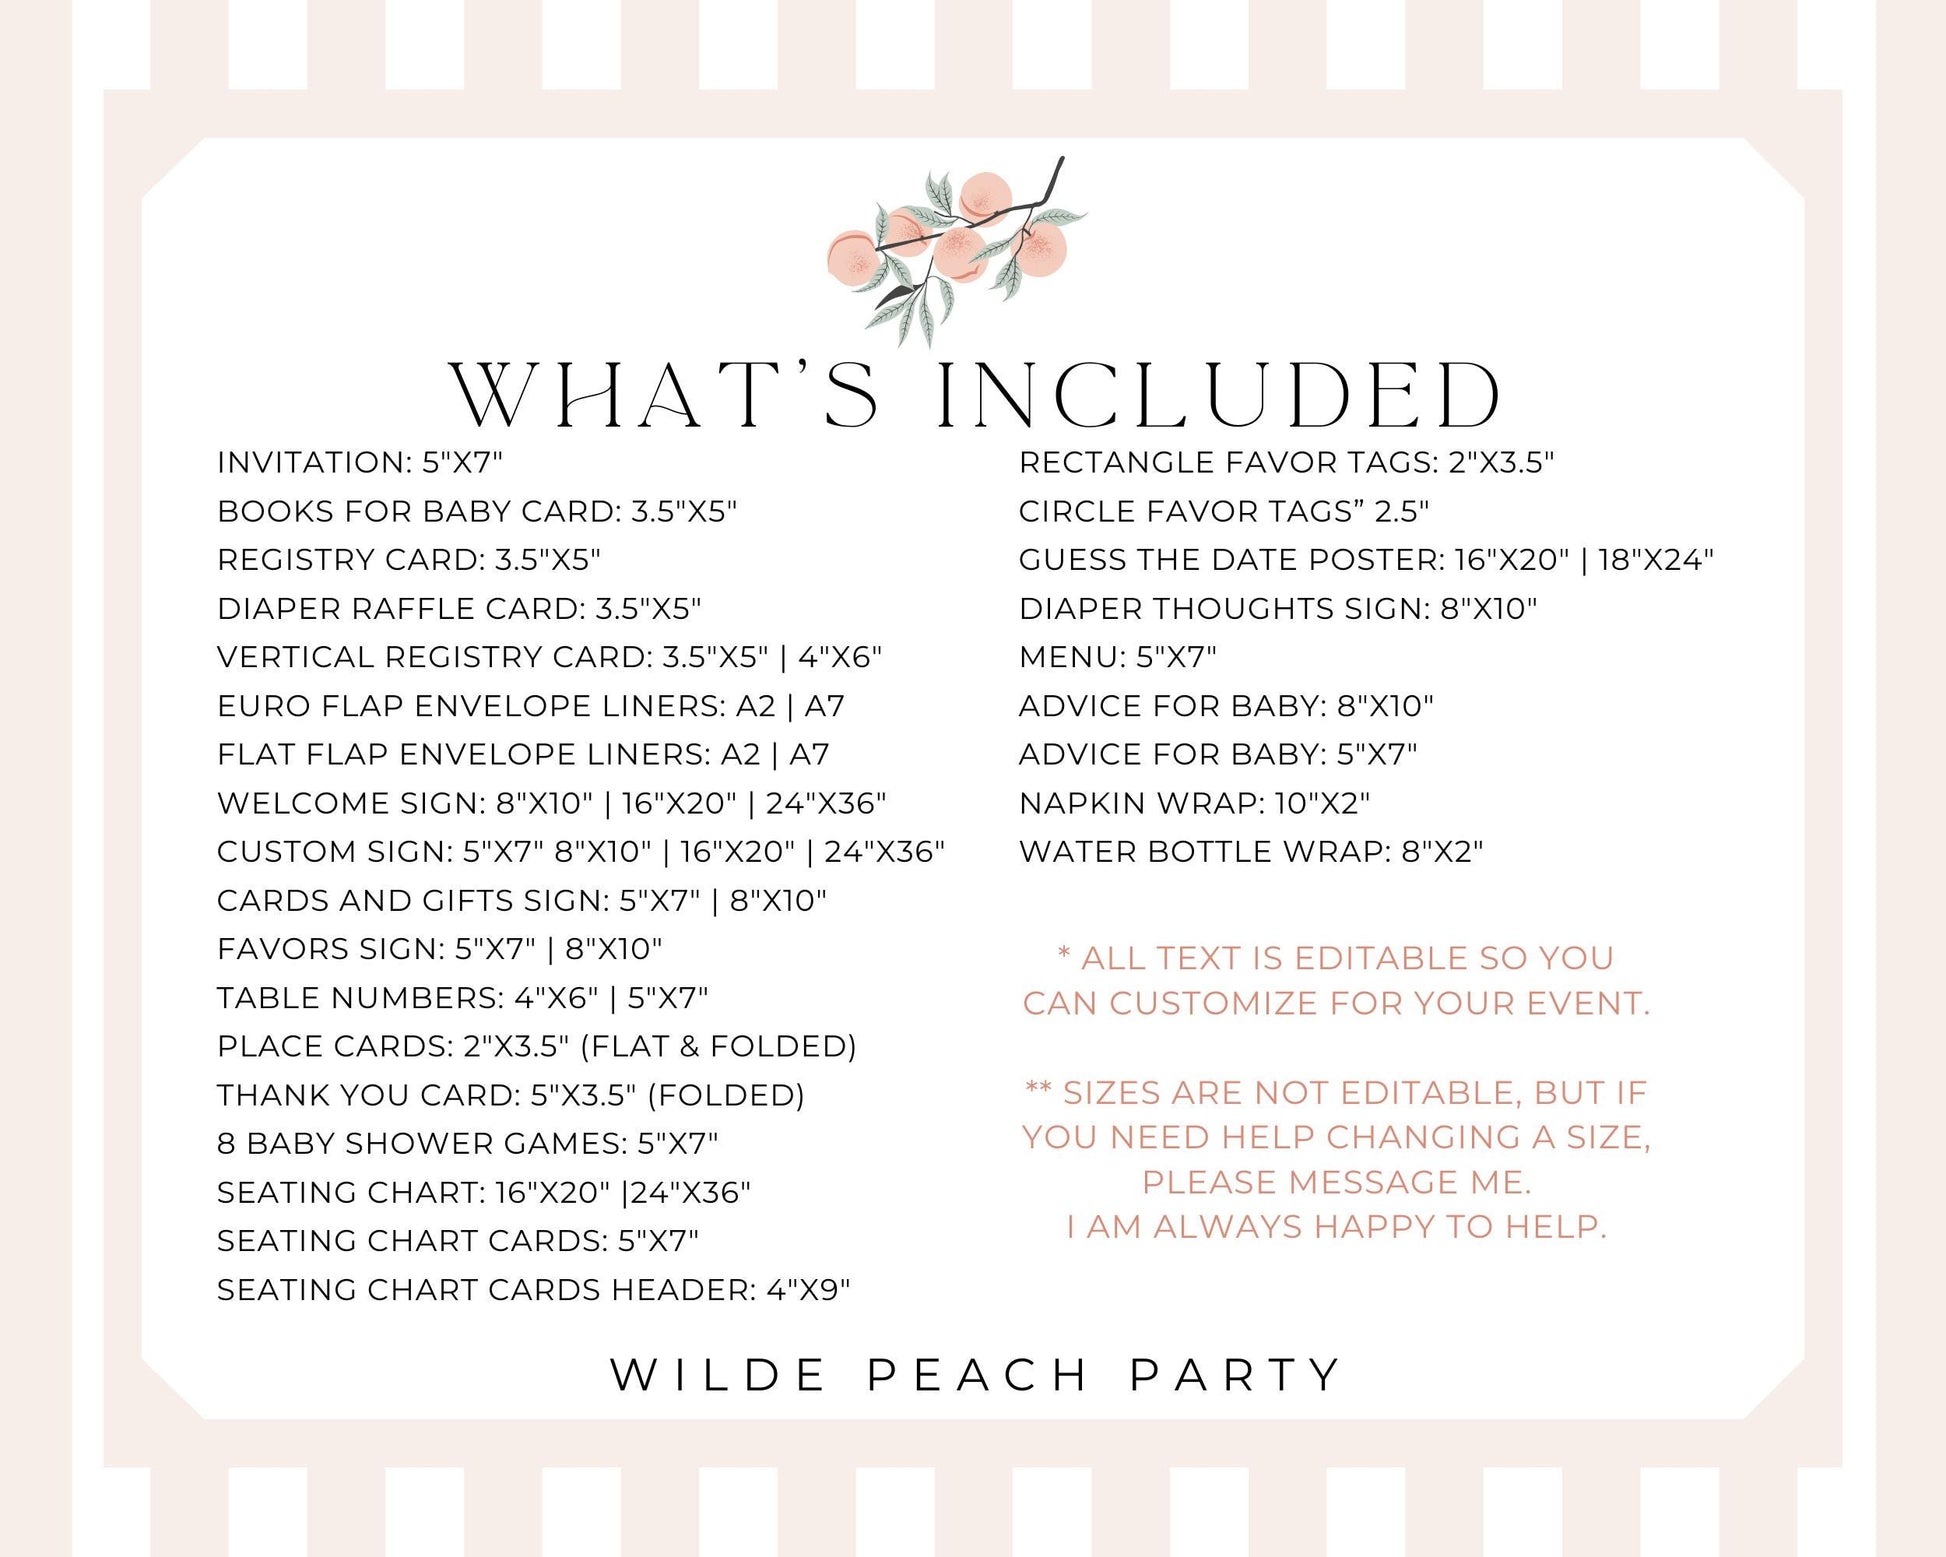 WHAT'S INCLUDED
INVITATION: 5"X7"
BOOKS FOR BABY CARD: 3.5"X5"
REGISTRY CARD: 3.5"X5"
DIAPER RAFFLE CARD: 3.5"X5"
VERTICAL REGISTRY CARD: 3.5"X5" | 4"X6"
EURO FLAP ENVELOPE LINERS: A2 | A7
FLAT FLAP ENVELOPE LINERS: A2 | A7
WELCOME SIGN: 8"X10" | 16"X20" | 24"X36"
CUSTOM SIGN: 5"X7" 8"X10" | 16"X20" | 24"X36"
CARDS AND GIFTS SIGN: 5"X7" | 8"X10"
FAVORS SIGN: 5"X7" | 8"X10"
TABLE NUMBERS: 4"X6" | 5"X7"
PLACE CARDS: 2"X3.5" (FLAT & FOLDED)
THANK YOU CARD: 5"X3.5" (FOLDED)
8 BABY SHOWER GAMES: 5"X7"
SEATING CHART: 16"X20" |24"X36"
SEATING CHART CARDS: 5"X7"
SEATING CHART CARDS HEADER: 4"X9"
RECTANGLE FAVOR TAGS: 2"X3.5"
CIRCLE FAVOR TAGS” 2.5"
GUESS THE DATE POSTER: 16"X20" | 18"X24"
DIAPER THOUGHTS SIGN: 8"X10"
MENU: 5"X7"
ADVICE FOR BABY: 8"X10"
ADVICE FOR BABY: 5"X7"
NAPKIN WRAP: 10"X2"
WATER BOTTLE WRAP: 8"X2"
* ALL TEXT IS EDITABLE SO YOU
CAN CUSTOMIZE FOR YOUR EVENT.
** SIZES ARE NOT EDITABLE, BUT IF
YOU NEED HELP CHANGING A SIZE,
PLEASE MESSAGE ME.
I AM ALWAYS HAPPY TO HELP.
WILDE PEACH PARTY